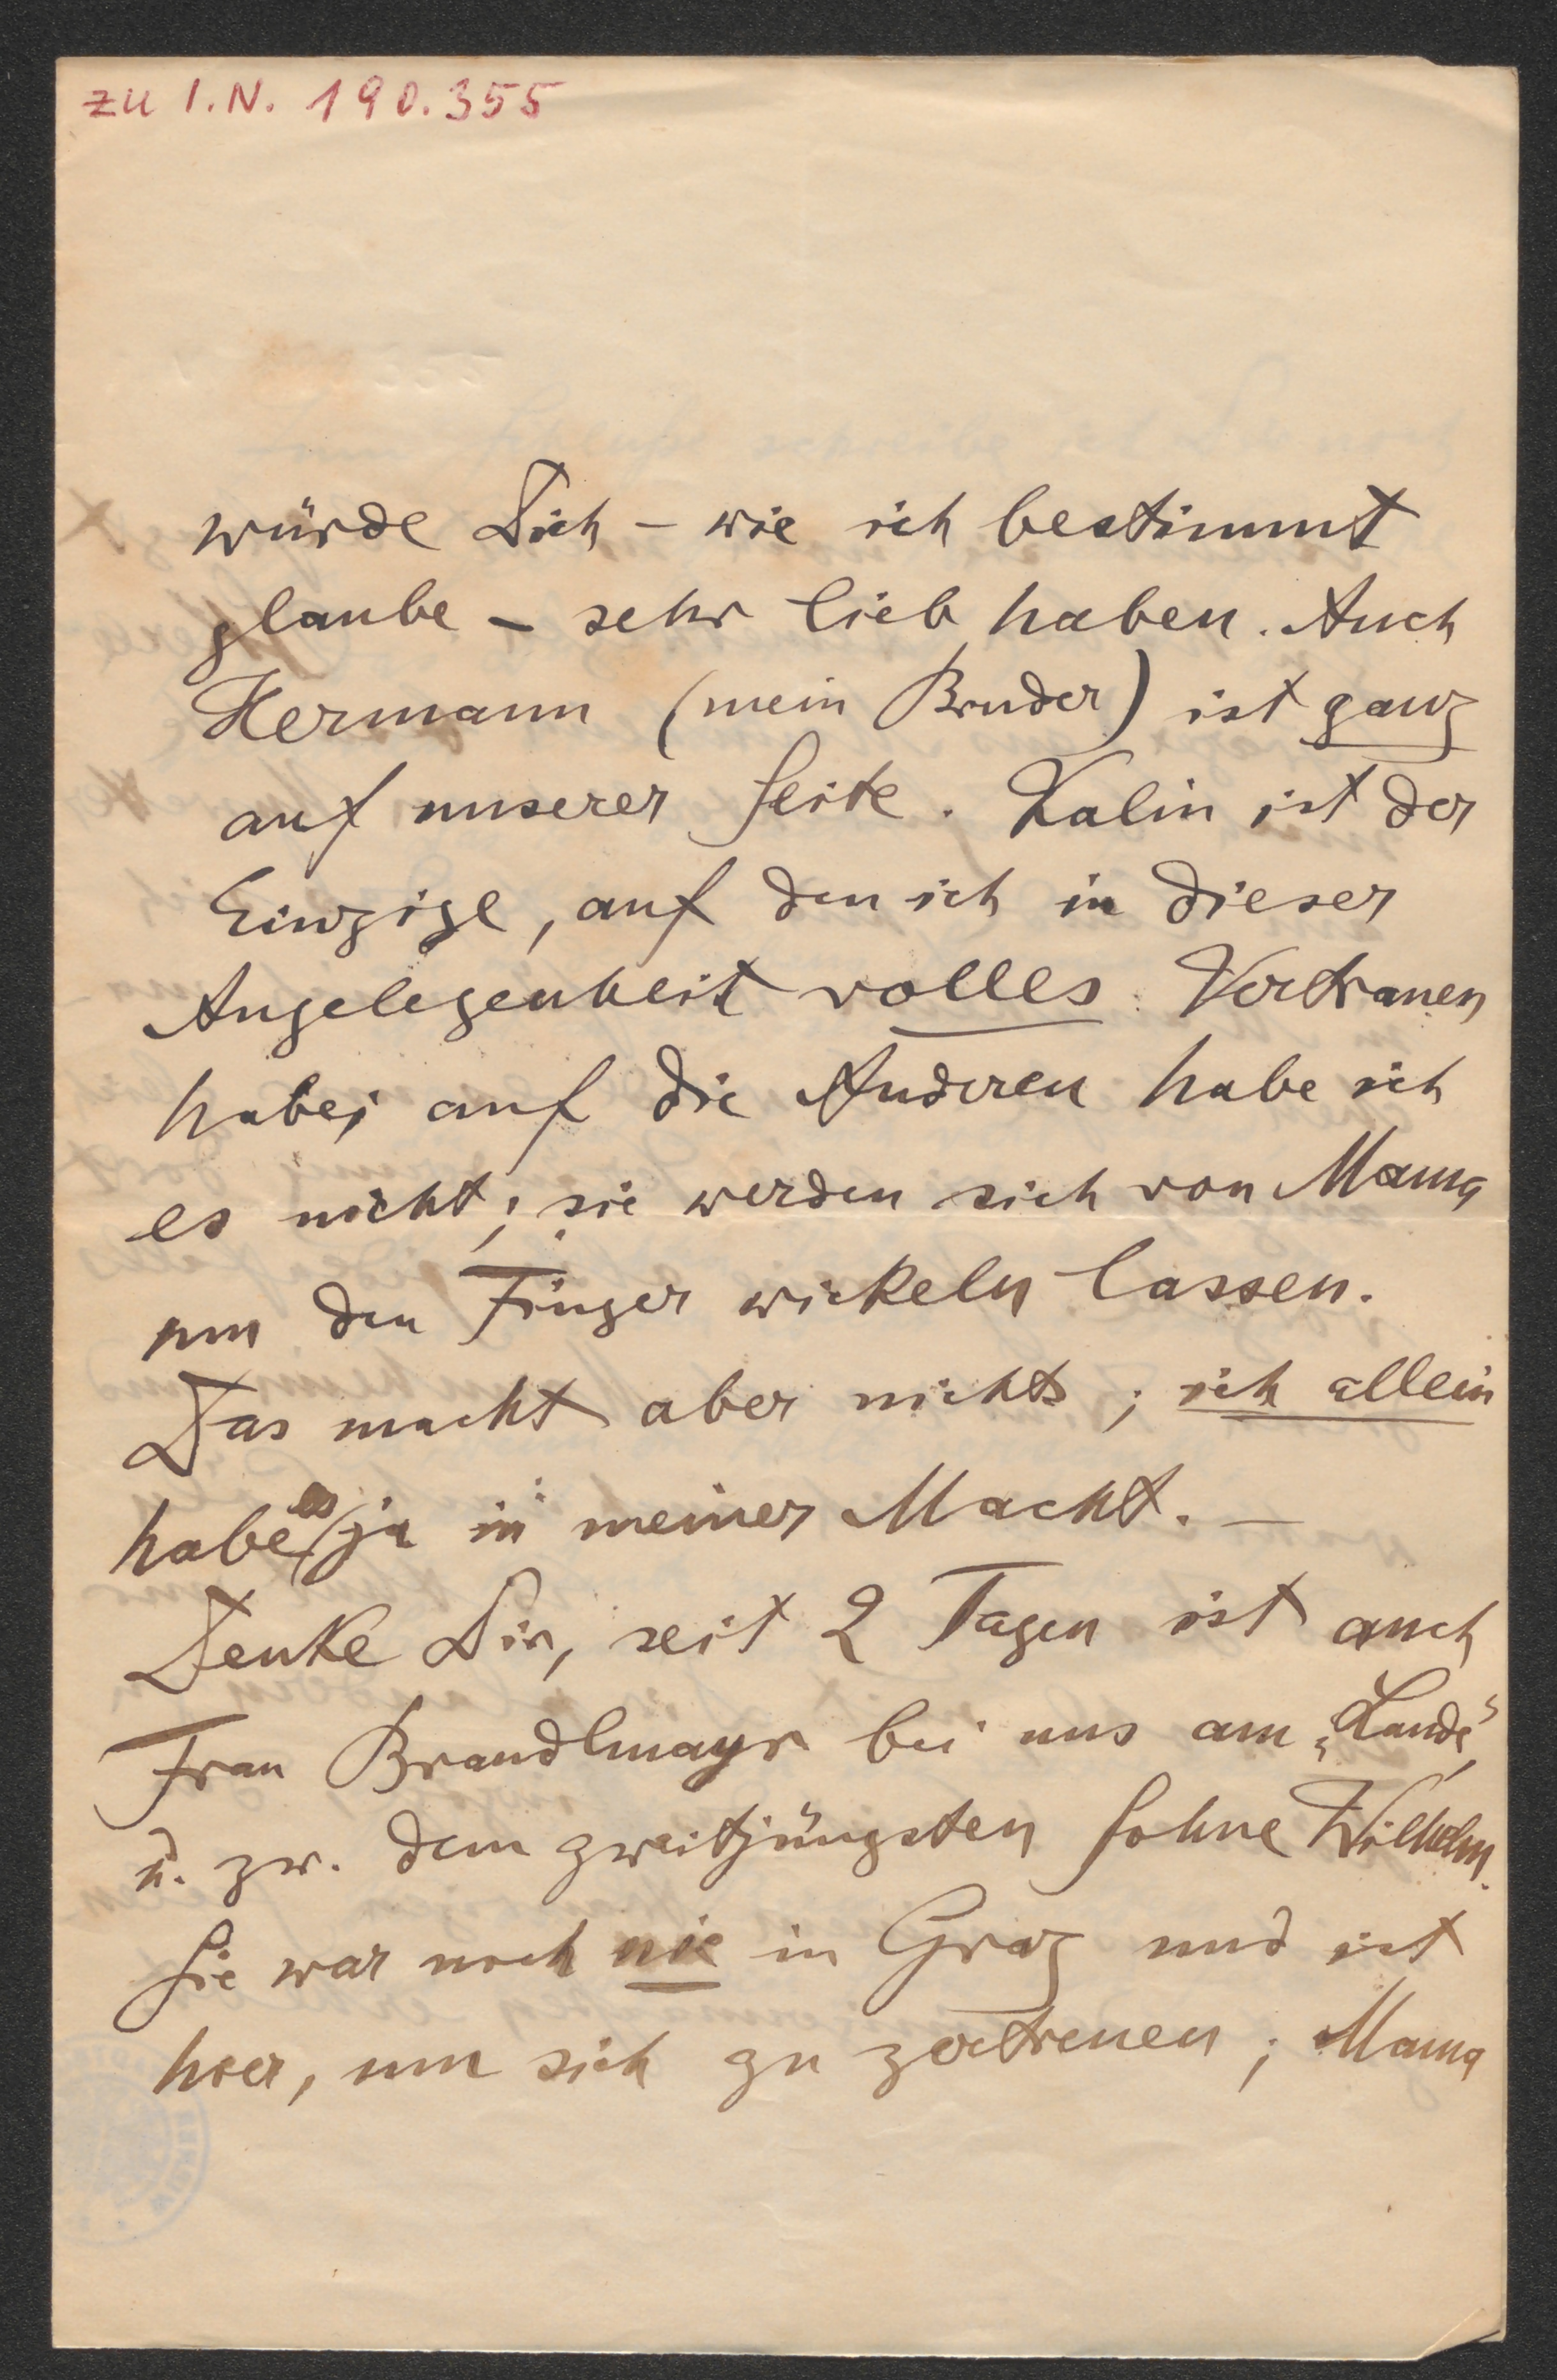 zu I.N. 190.355
würde Dich – wie ich bestimmt
glaube – sehr lieb haben. Auch
Hermann (mein Bruder) ist ganz
auf unserer Seite. Kalin ist der
Einzige, auf den ich in dieser
Angelegenheit volles Vertrauen
habe; auf die Anderen habe ich
es nicht; sie werden sich von Mama
um den Finger wickeln lassen.
Das macht aber nichts; ich allein
habe es ja in meiner Macht. –
Denke Dir, seit 2 Tagen ist auch
Frau Brandlmayr bei uns am „Lande“,
u. zw. dem zweitjüngsten Sohne Wilhelm.
Sie war noch nie in Graz und ist
hier, um sich zu zerstreuen; Mama